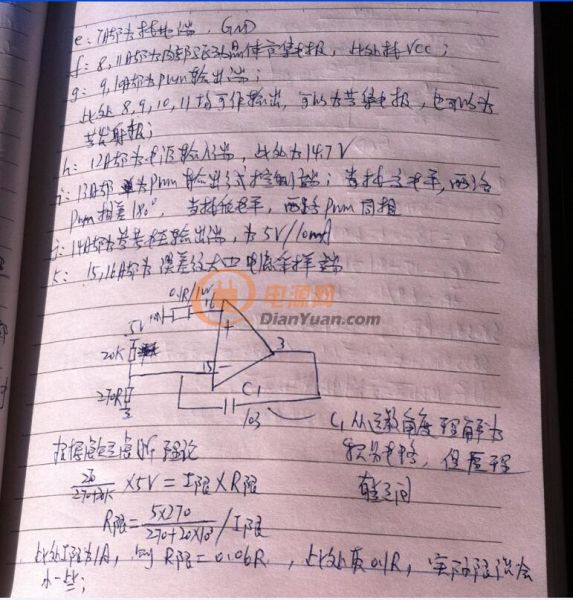 e: 7脚为接地端, GND
f: 8,11脚为内部驱动晶体管集电极, 此处接VCC;
g: 9,10脚为PWM输出端;
此处 8,9,10,11均可作输出, 可以为共集电极, 也可以为
共发射极;
h: 12脚为电源输入端, 此处为14.7V
i: 13脚 为PWM输出方式控制端; 当接高电平, 两路
PWM相差180°, 当接低电平, 两路PWM同相
j: 14脚为基准输出端, 为5V/10mA
k: 15,16脚为误差放大 电流采样端
0.1R/1W
16
5V
20K
15
3
270R
C1
103
电源网
DianYuan.com
C1 从 角度理解为
积分电路, 但原理
有疑问
根据 理论
270+20K ×5V = I限×R限
R限= 5×270 / 270+20×10³ / I限
此处I限为1A, 则 R限=0.06R, 此处取0.1R, 实际限流会
小一些;